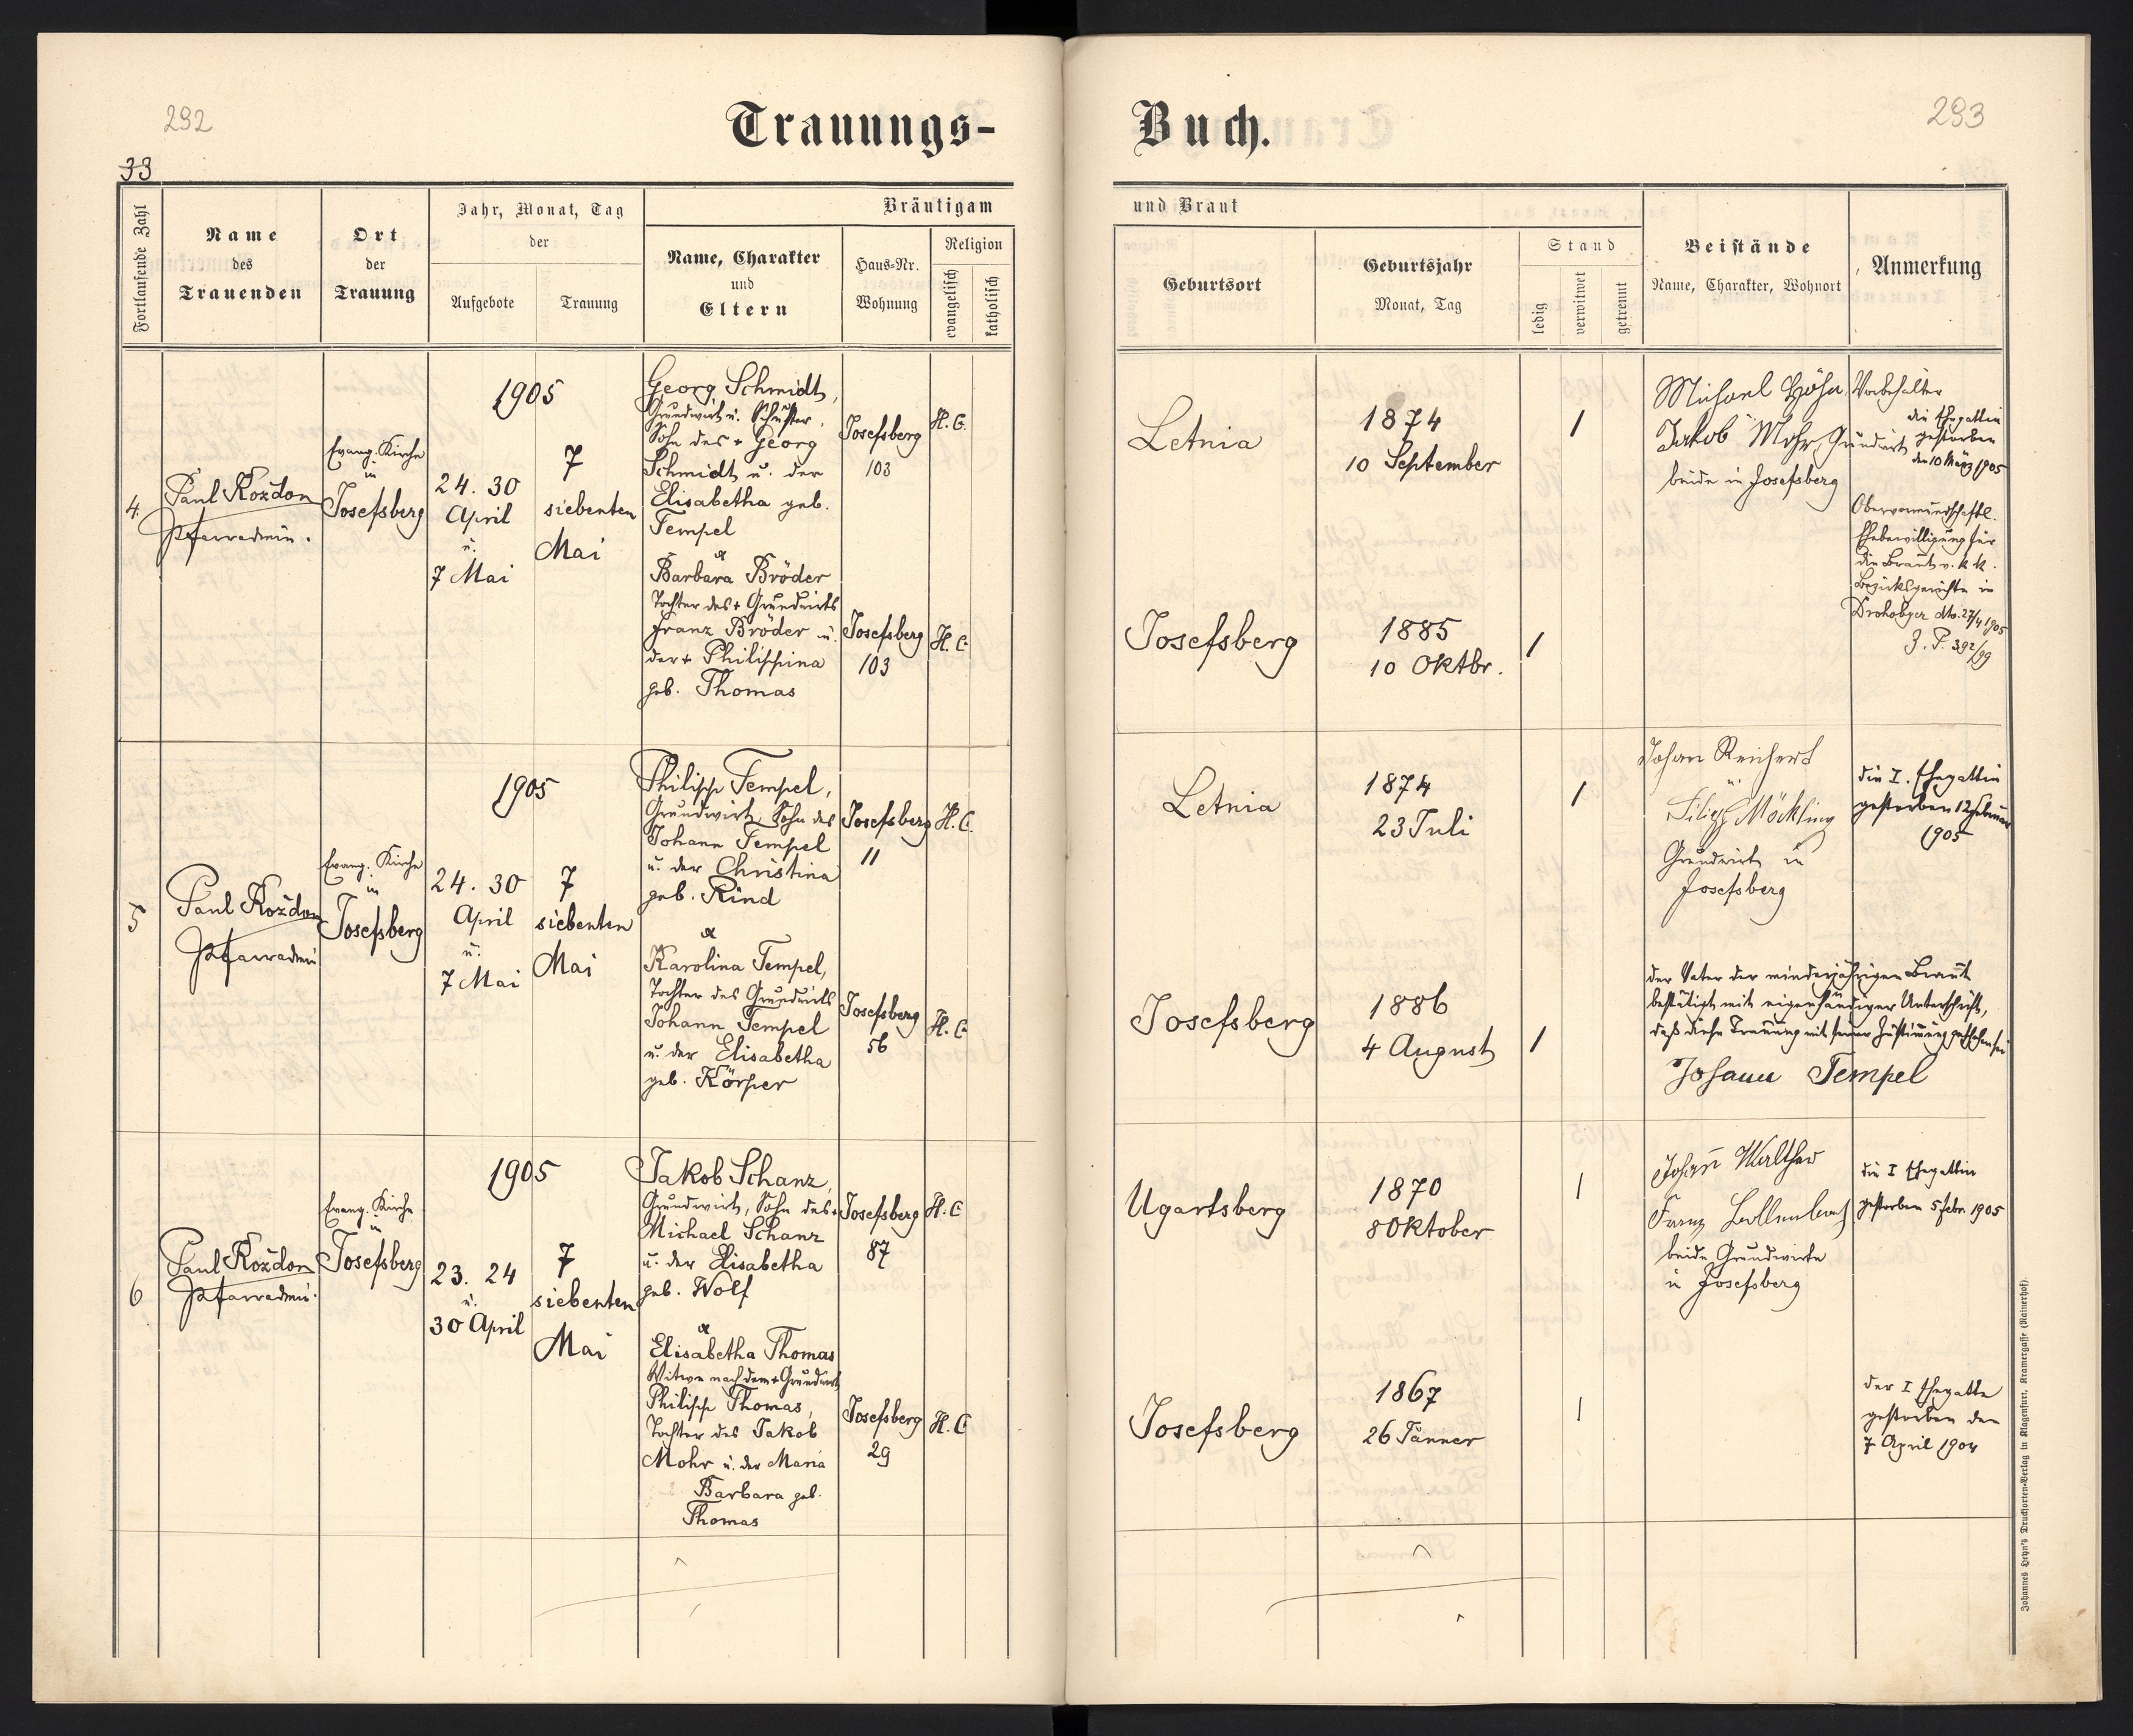 292
Trauungs-
33
Fortlaufende Zahl
Name
des
Trauenden
Ort
der
Trauung
Jahr, Monat, Tag
der
Aufgebote
Trauung
Bräutigam
Name, Charakter
und
Eltern
Haus-Nr.
Wohnung
Religion
evangelisch
katholisch
4.
Paul Koždon
Pfarradmin.
Evang. Kirche
in
Josefsberg
1905
24. 30
April
u.
7 Mai
7
siebenten
Mai
Georg Schmidt,
Grundwirt u. Schuster,
Sohn des + Georg
Schmidt u. der
Elisabetha geb.
Tempel
Josefsberg
103
H. C.
Barbara Bröder
Tochter des + Grundwirts
Franz Bröder u.
der + Philippina
geb. Thomas
Josefsberg
103
H. C.
5
Paul Koždon
Pfarradmin
Evang. Kirche
in
Josefsberg
1905
24. 30
April
u.
7 Mai
7
siebenten
Mai
Philipp Tempel,
Grundwirt, Sohn des
Johann Tempel
u. der Christina
geb. Rind
Josefsberg
11
H. C.
Karolina Tempel,
Tochter des Grundwirts
Johann Tempel
u. der Elisabetha
geb. Körper
Josefsberg
56
H. C.
6
Paul Koždon
Pfarradmin.
Evang. Kirche
in
Josefsberg
1905
23. 24
u.
30 April
7
siebenten
Mai
Jakob Schanz,
Grundwirt, Sohn des +
Michael Schanz
u. der Elisabetha
geb. Wolf
Josefsberg
87
H. C.
Elisabetha Thomas
Witwe nach dem + Grundwirt
Philipp Thomas,
Tochter des Jakob
Mohr u. der Maria
Barbara geb.
Thomas
Josefsberg
29
H. C.
293
Buch.
und Braut
Geburtsort
Geburtsjahr
Monat, Tag
Stand
ledig
verwitwet
getrennt
Beistände
Name, Charakter, Wohnort
Anmerkung
Letnia
1874
10 September
/
Michael Höhn
Jakob Mohr, Grundwirt
beide in Josefsberg
die Ehegattin
gestorben
den 10 März 1905
Josefsberg
1885
10 Oktbr.
/
Obervormundschaftl.
Ehebewilligung für
die Braut v. k. k.
Bezirksgerichte in
Drohobycz dto. 27/4 1905
J. P. 392/99
Letnia
1874
23 Juli
/
Johan Reichert
u
Filipp Möckling
Grundwirte in
Josefsberg
die I. Ehegattin
gestorben 12 Februar
1905
Josefsberg
1886
4 August
/
der Vater der minderjährigen Braut
bestätigt mit eigenhändiger Unterschrift,
daß diese Trauung mit seiner Zustimmung geschehen sei
Johann Tempel
Ugartsberg
1870
8 Oktober
/
Johan Walther
Franz
beide Grundwirte
in Josefsberg
die I Ehegattin
gestorben 5 Febr. 1905
Josefsberg
1867
26 Jänner
/
der I Ehegatte
gestorben den
7 April 1904
Johannes Heyn's Drucksorten-Verlag in Klagenfurt, Kramergasse (Rainerhof).